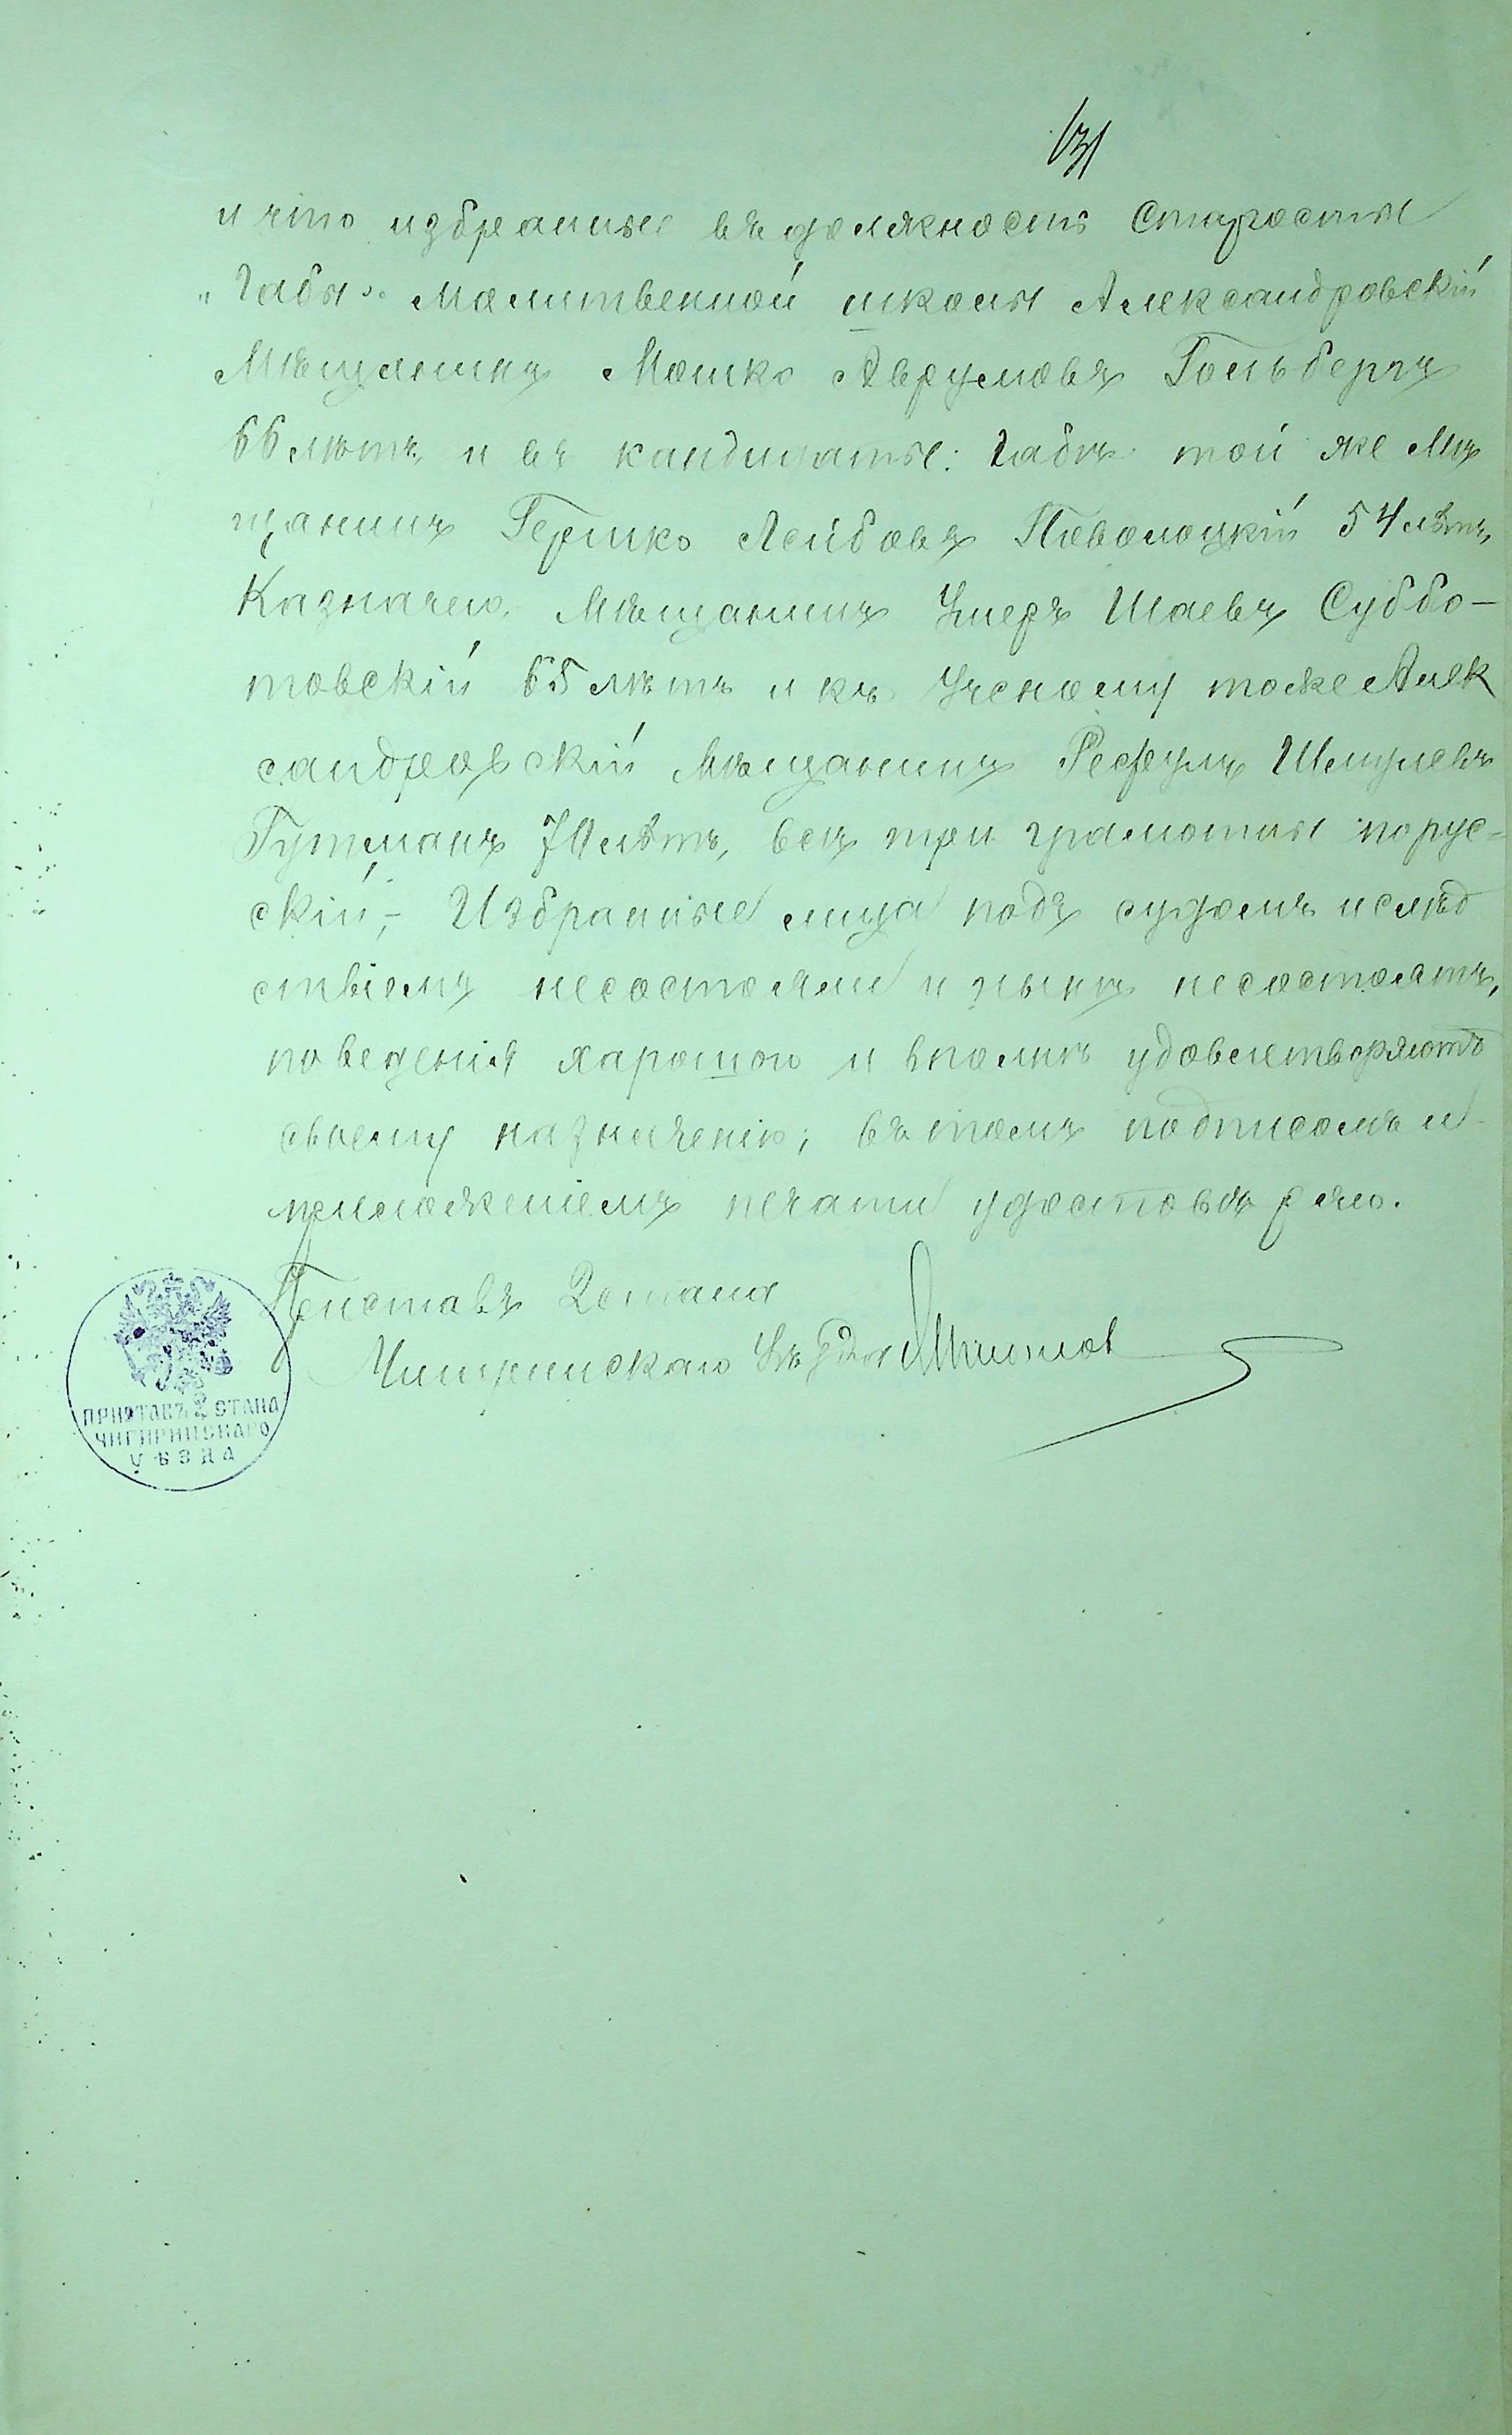 131
и что избранные въ должность Старосты
„Габы" Молитвенной школы Александровскій
Мѣщанинъ Мошко Аврумовъ Гольбергъ
66 лѣтъ, и въ кандидаты: Габы той же Мѣ
щанинъ Гершко Лейбовъ Поволоцкій 54 лѣтъ,
Казначею Мѣщанинъ Умеръ Шаевъ Суббо-
товскій 65 лѣтъ и къ Ученому тоже Алек
сандровскій Мѣщанинъ Шмулевъ
Гутманъ 70 лѣтъ, всѣ три грамотны порус-
скій,- Избранные лица подъ судомъ и слѣд
ствіемъ несостояли и нынѣ несостоятъ,
поведенія харошои и вполнѣ удовлетворяютъ
своему назначенію; въ томъ подписомъ и
приложеніемъ печати удостовѣряю.
Приставъ 2 стана
Чигиринскаго Уѣзда
ПРИСТАВЪ 2 СТАНА
ЧИГИРИНСКАГО
УѢЗДА